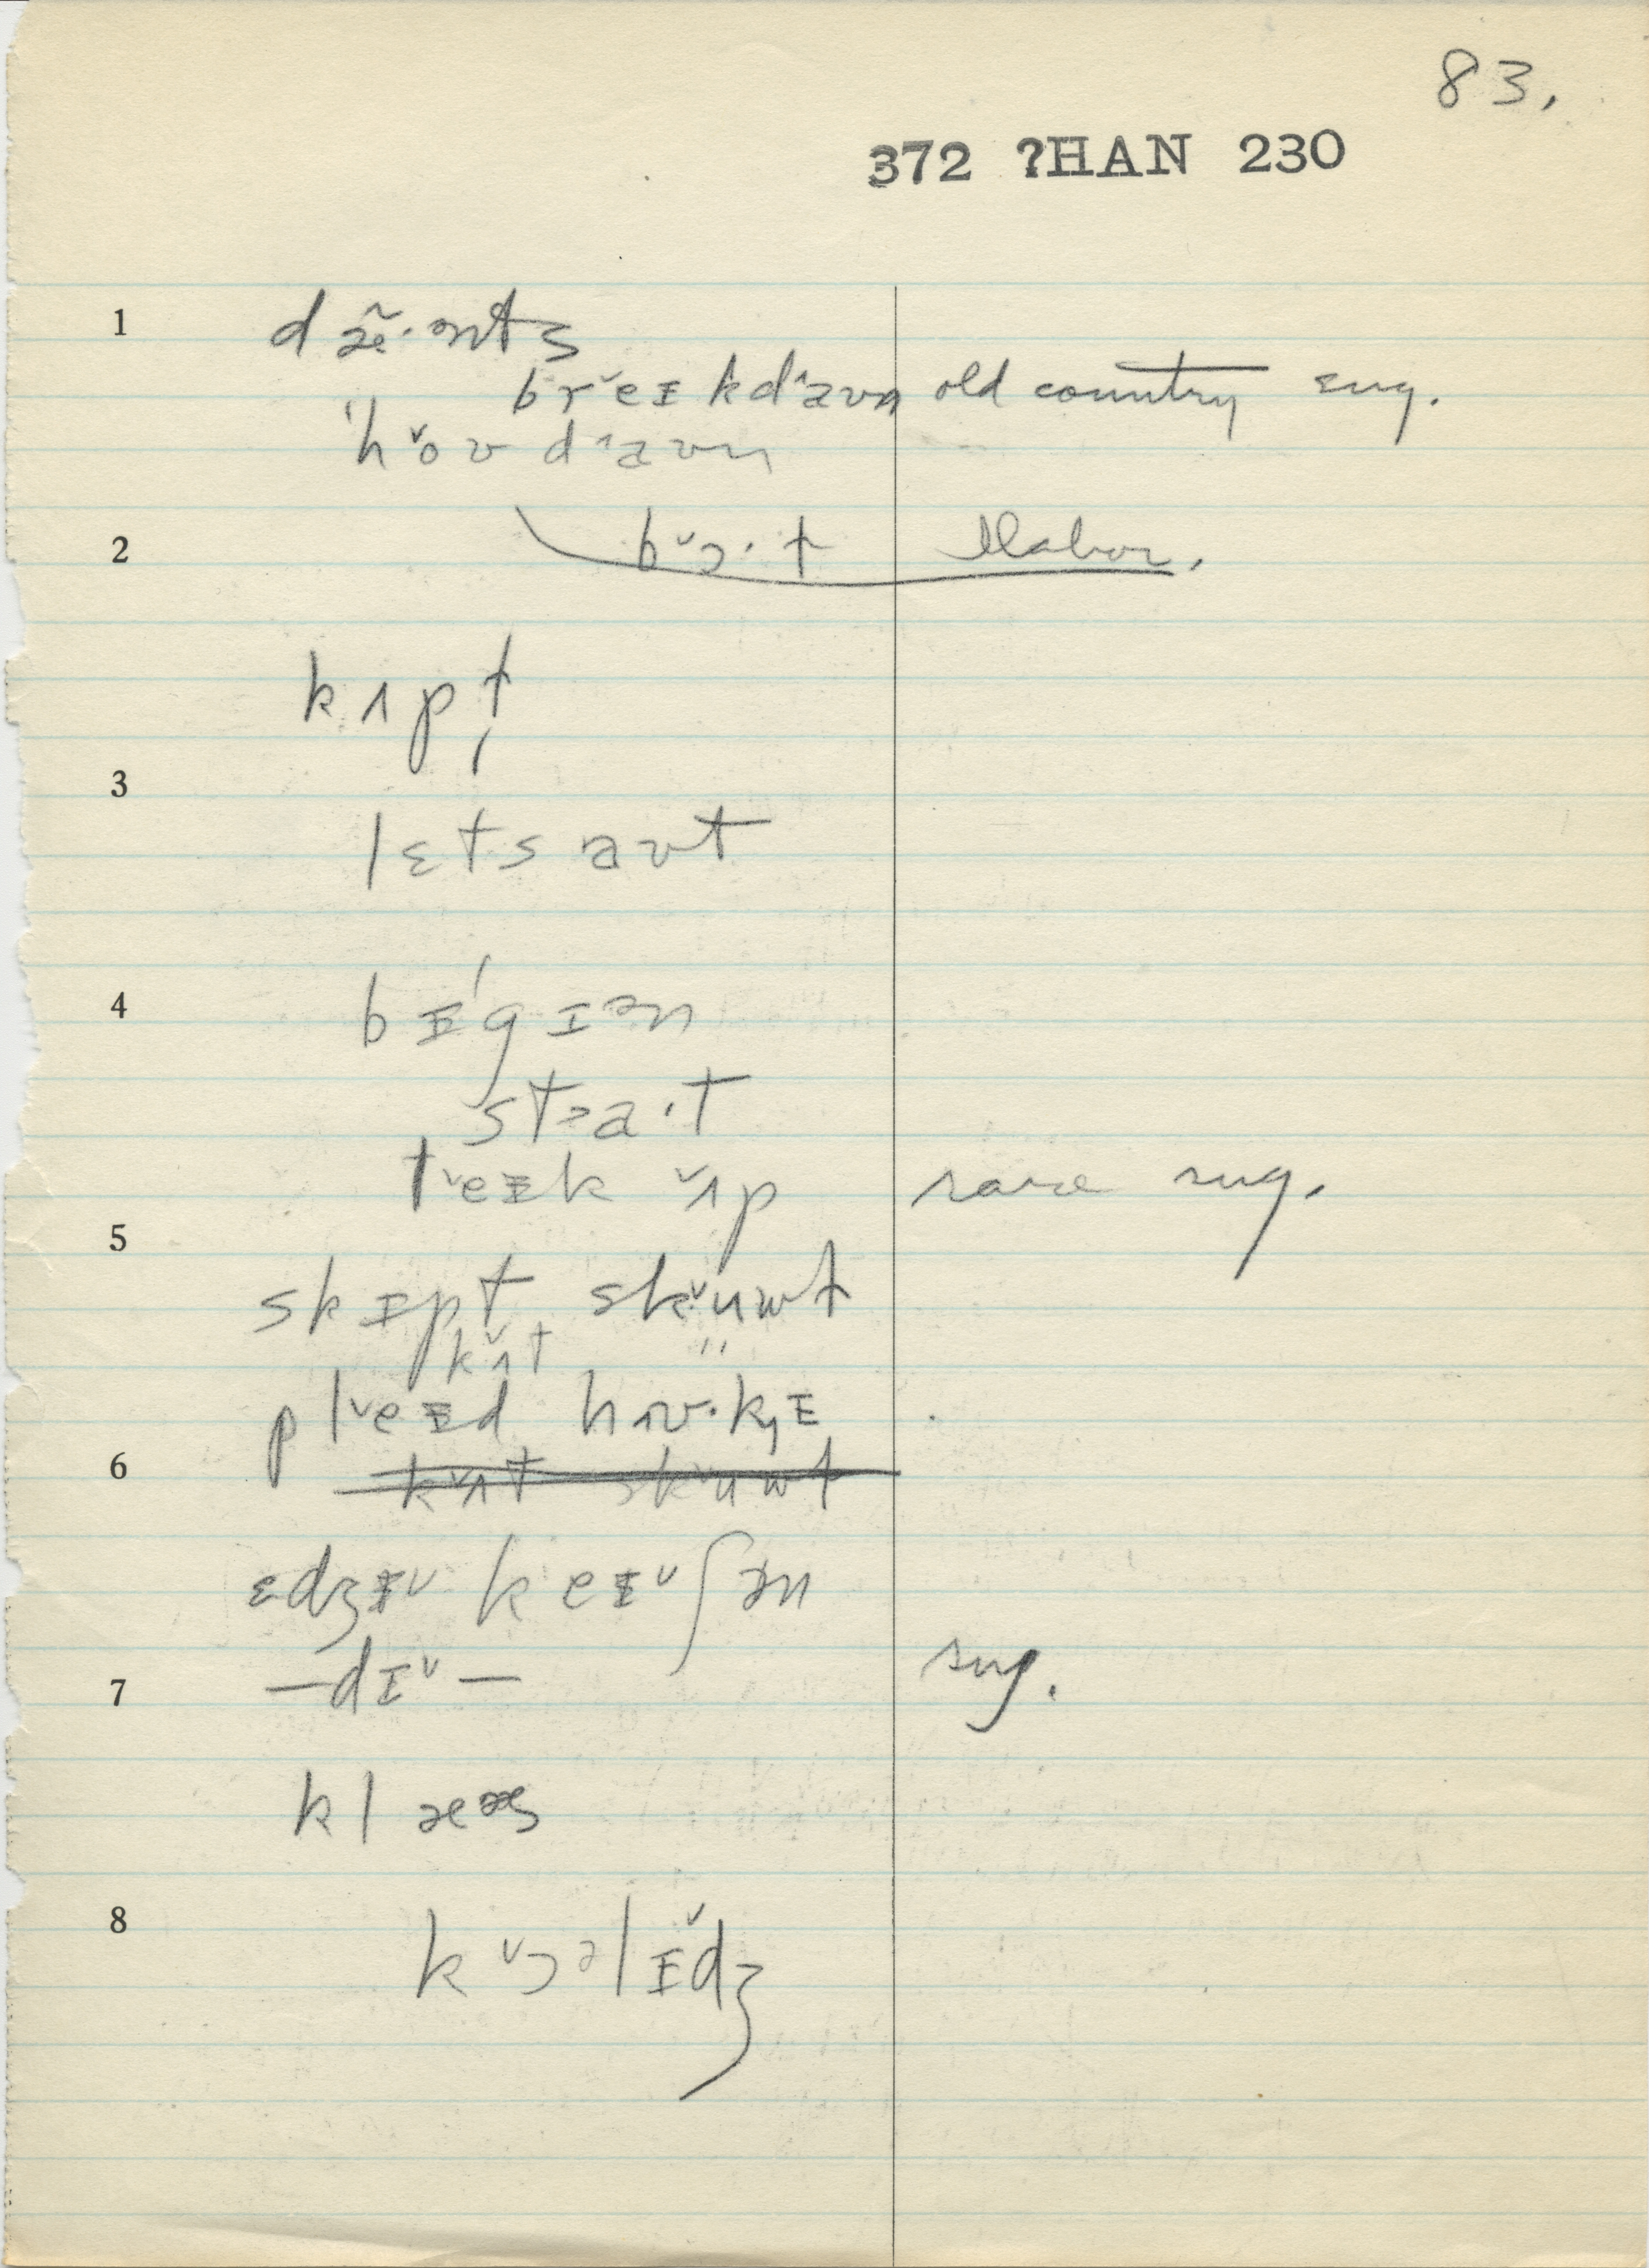 83.
372 ?HAN 230
1
dæ̃·ənts
brˇeɪkdˆaʊn old country sug.
"hˇoʊ dˆaʊn
2
bˇɔ·t Nabor.
kʌpt̡
3
lɛts aʊt
4
bɪ'gɪən
stɜa·t
tˇeɪk ˇʌp rare sug.
5
skɪpt skˇuwt
kˇʌt "
plˇeɪd hʌʊ·kɪ
6
kˇʌt skˇuwt
ɛdʒɪˇkeɪˇʃən
7
—dɪˇ— sug.
klæəs
8
kˇɔəlɪˇdʒ